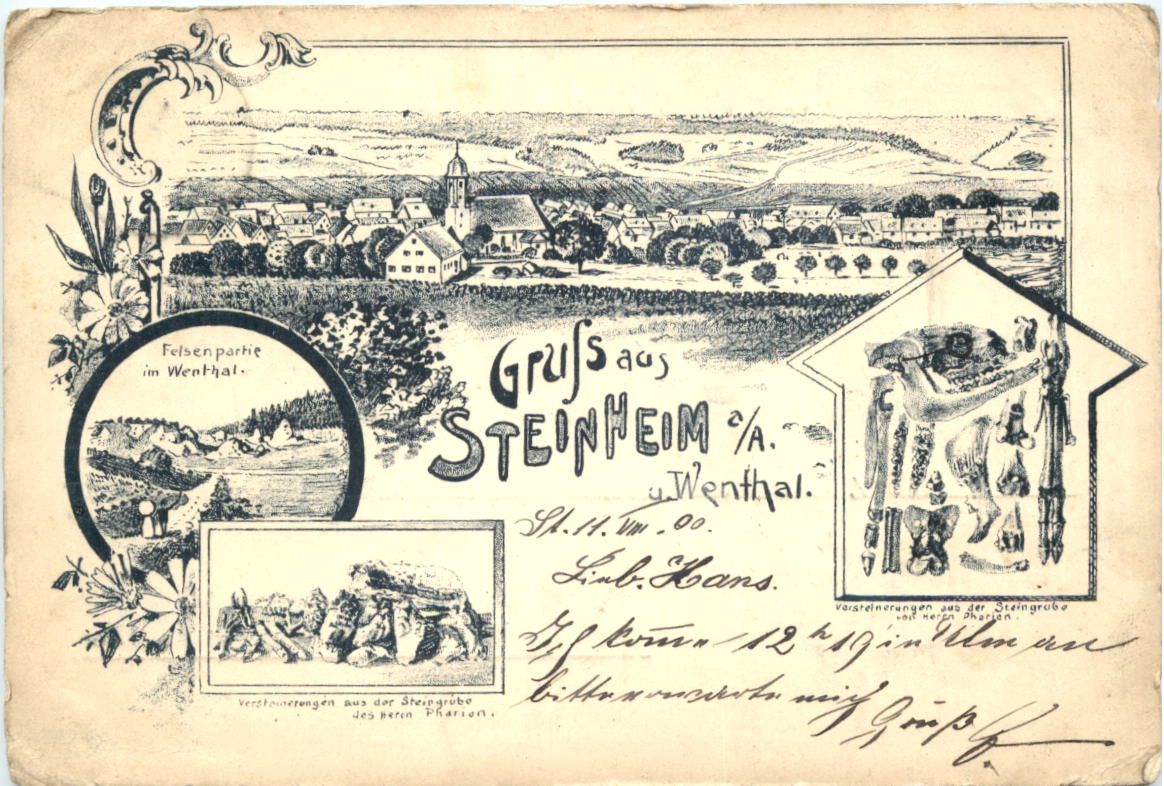 Felsenpartie
im Wenthal.
Gruſs aus
STEINHEIM a/A.
u. Wenthal.
St. 11. VIII. 00.
Lieb. Hans.
Ich kom̄e 12 h 19 in Ulm an
bitte erwarte mich
Gruß
Versteinerungen aus der Steingrube
von Herrn Pharion.
Versteinerungen aus der Steingrube
des Herrn Pharion.